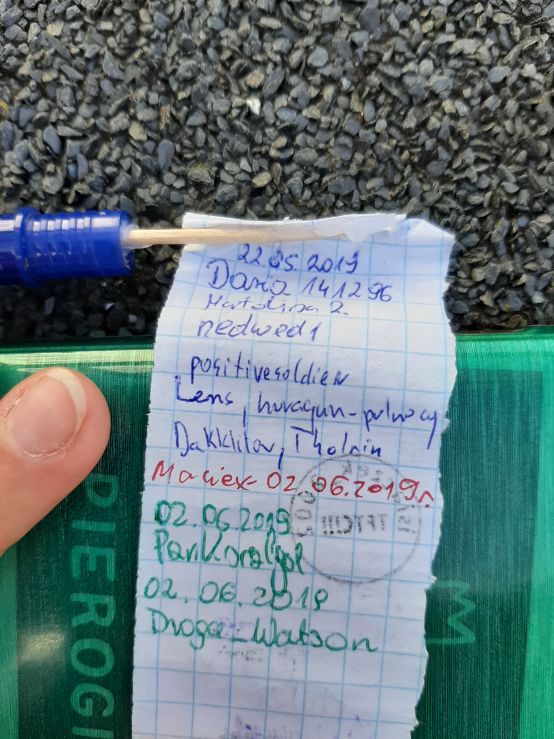 22.05.2019
Daria 141296
Natalina 2.
nedwed1
positivesoldier
Lens, huragan-polnocy
Dakklitov, Tholnin
Maciex 02.06.2019r.
02.06.2019
02.06.2019
Droga_Watson
PIEROGI